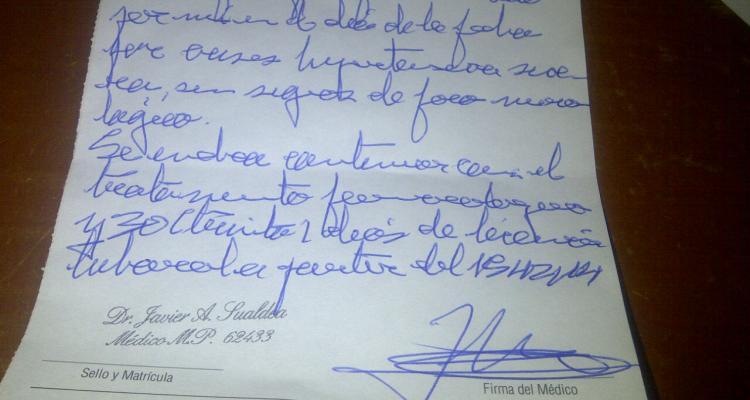 día de la fecha
por crisis hipertensiva seve-
ra, sin signos de foco neuro
lógico.
Se indica continuar con el
tratamiento farmacológico
y 30 (treinta) días de licencia
laboral a partir del
Dr. Javier A. Sualdea
Médico M.P. 62433
Sello y Matrícula
Firma del Médico